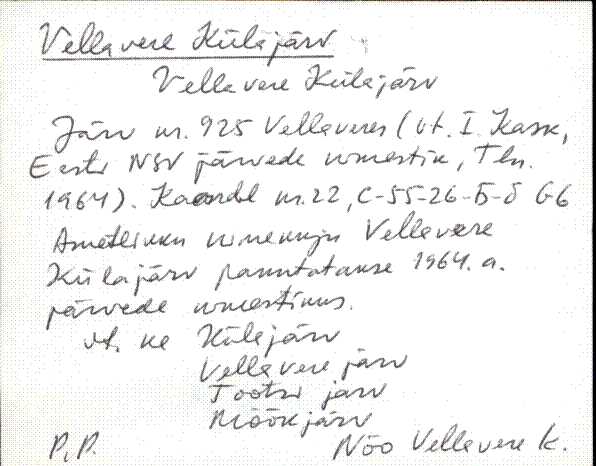 Vellavere Külajärv
Vellavere Külajärv
Järv nr. 925 Vellaveres (vt. I. Kask,
Eesti NSV järvede nimestik, Tln.
1964). Kaardil nr. 22, C-55-26-Б-б G6
Ametlikku nimekuju Vellavere
Külajärv kasutatakse 1964. a.
järvede nimestikus.
vt. ka Külajärv
Vellavere järv
Tootsi järv
Möökjärv
P.P. Nõo Vellavere k.